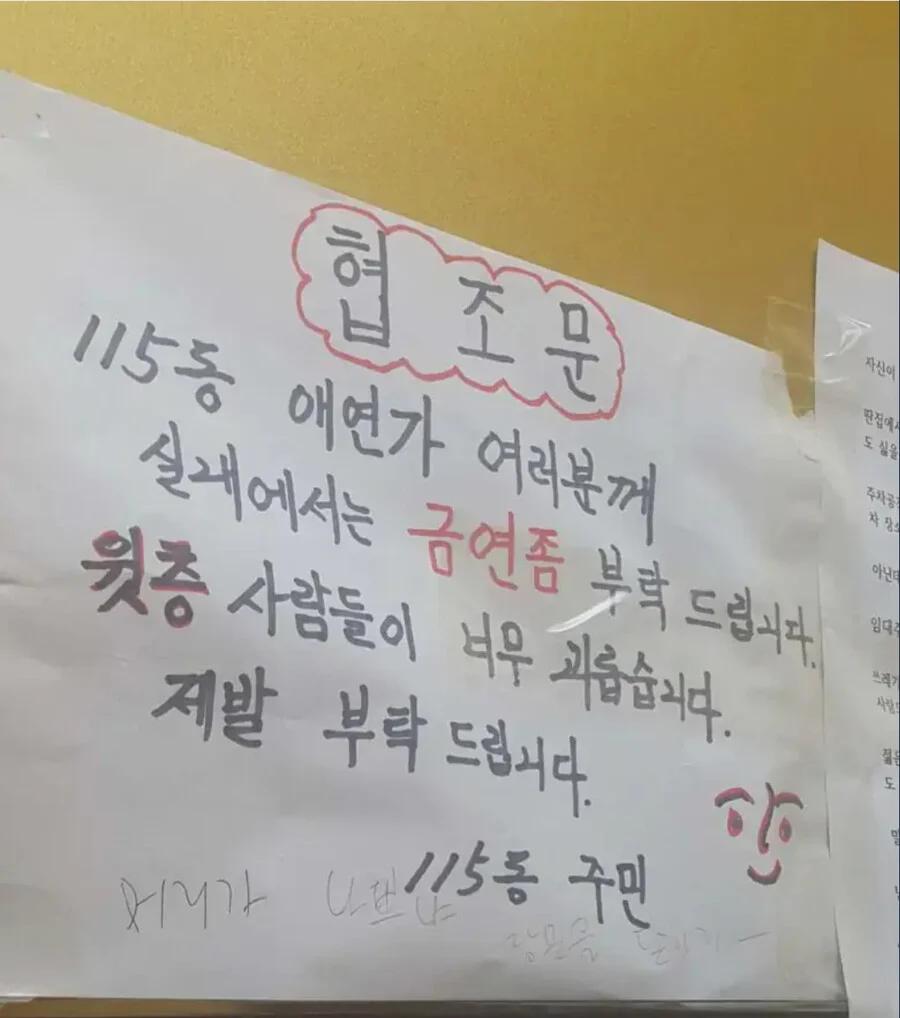 협조문
115동 애연가 여러분께
실내에서는 금연좀 부탁 드립니다.
윗층 사람들이 너무 괴롭습니다.
제발 부탁 드립니다.
115동 주민
머리가 나쁘냐
창문을
자신이
딴집에서
도 싫을
주차공간
차 장소
아닌데
임대주
쓰레기
사람도
젊은
도